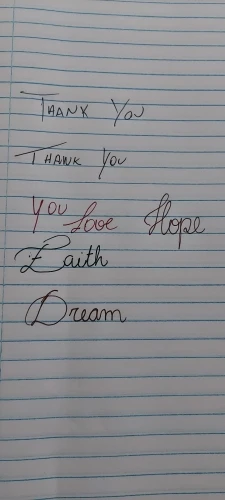 THANK YOU
THANK YOU
YOU Love Hope
Faith
Dream